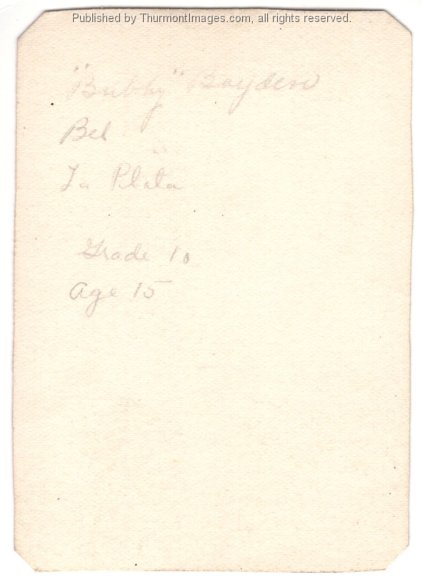 Published by ThurmontImages.com, all rights reserved.
"Bubby" Bayden
Bel
La Plata
Grade 10
Age 15